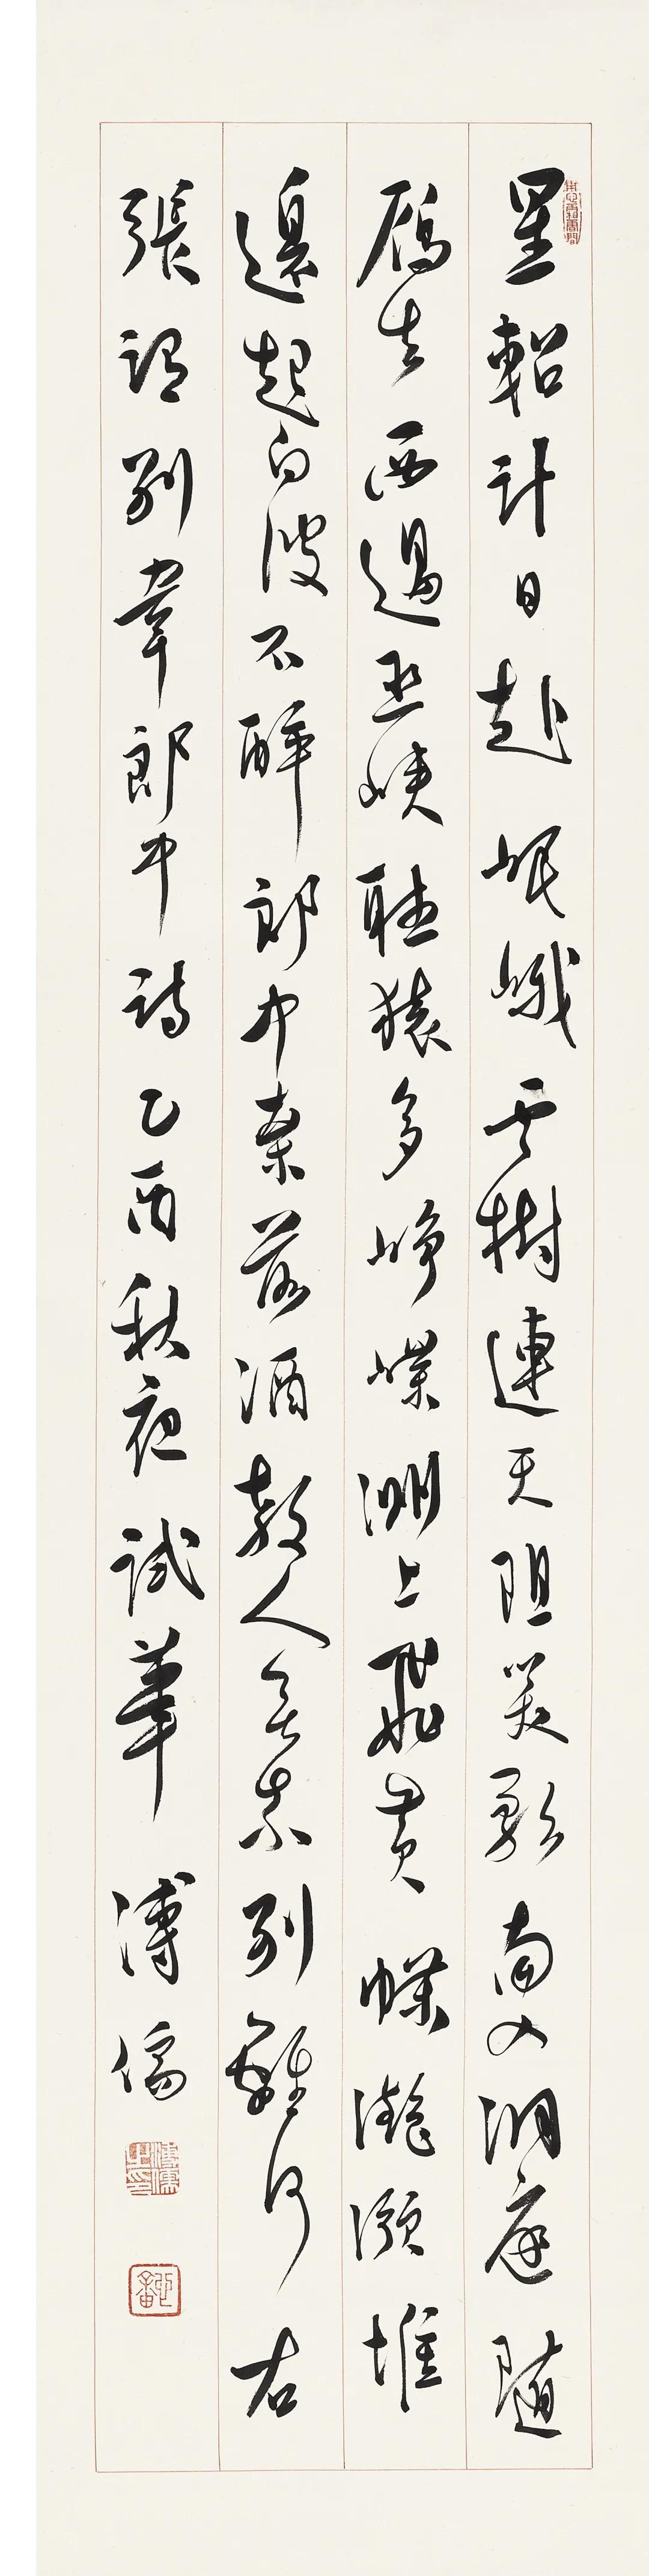 星軺計日赴岷峨雲樹連天阻笑歌南入洞庭隨
雁去西過巫峽聽猿多崢嶸洲上飛黃蝶灩澦堆
邊起白波不醉郎中桑落酒教人無奈別離何右
張謂別韋郎中詩乙酉秋夜試筆溥儒
溥儒之印